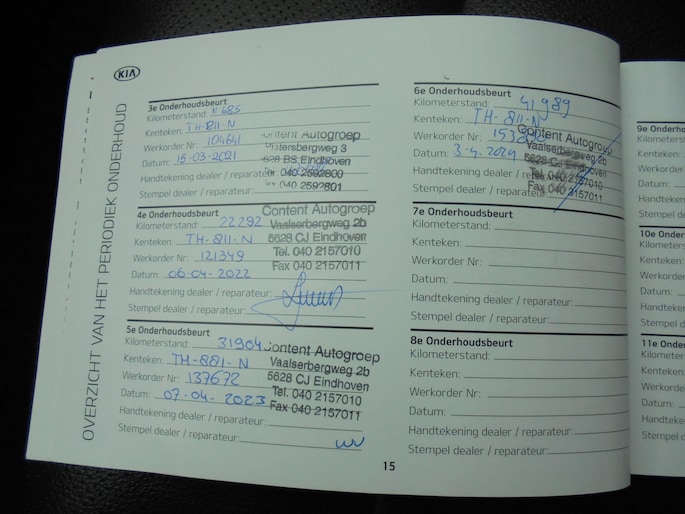 KIA
OVERZICHT VAN HET PERIODIEK ONDERHOUD
3e Onderhoudsbeurt
Kilometerstand: 11685
Kenteken: TH-811-N
Werkorder Nr: 104641
Datum: 15-03-2021
Handtekening dealer / reparateur:
Stempel dealer / reparateur:
Content Autogroep
Pietersbergweg 3
5628 BS Eindhoven
Tel 040 2592800
Fax 040 2592801
4e Onderhoudsbeurt
Kilometerstand: 22292
Kenteken: TH-811-N
Werkorder Nr: 121349
Datum: 06-04-2022
Handtekening dealer / reparateur:
Stempel dealer / reparateur:
Content Autogroep
Vaalserbergweg 2b
5628 CJ Eindhoven
Tel. 040 2157010
Fax 040 2157011
5e Onderhoudsbeurt
Kilometerstand: 31904
Kenteken: TH-881-N
Werkorder Nr: 137672
Datum: 07-04-2023
Handtekening dealer / reparateur:
Stempel dealer / reparateur:
Content Autogroep
Vaalserbergweg 2b
5628 CJ Eindhoven
Tel. 040 2157010
Fax 040 2157011
15
6e Onderhoudsbeurt
Kilometerstand: 41989
Kenteken: TH-811-N
Werkorder Nr:
Datum: 3-4-2024
Handtekening dealer / reparateur:
Stempel dealer / reparateur:
Content Autogroep
Vaalserbergweg 2b
5628 CJ Eindhoven
Tel. 040 2157010
Fax 040 2157011
7e Onderhoudsbeurt
Kilometerstand:
Kenteken:
Werkorder Nr:
Datum:
Handtekening dealer / reparateur:
Stempel dealer / reparateur:
8e Onderhoudsbeurt
Kilometerstand:
Kenteken:
Werkorder Nr:
Datum:
Handtekening dealer / reparateur:
Stempel dealer / reparateur:
9e Onderho
Kilometers
Kenteken:
Werkorder
Datum:
Handteken
Stempel de
10e Onder
Kilometers
Kenteken:
Werkorder
Datum:
Handteken
Stempel de
11e Onder
Kilometers
Kenteken:
Werkorder
Datum:
Handteke
Stempel d